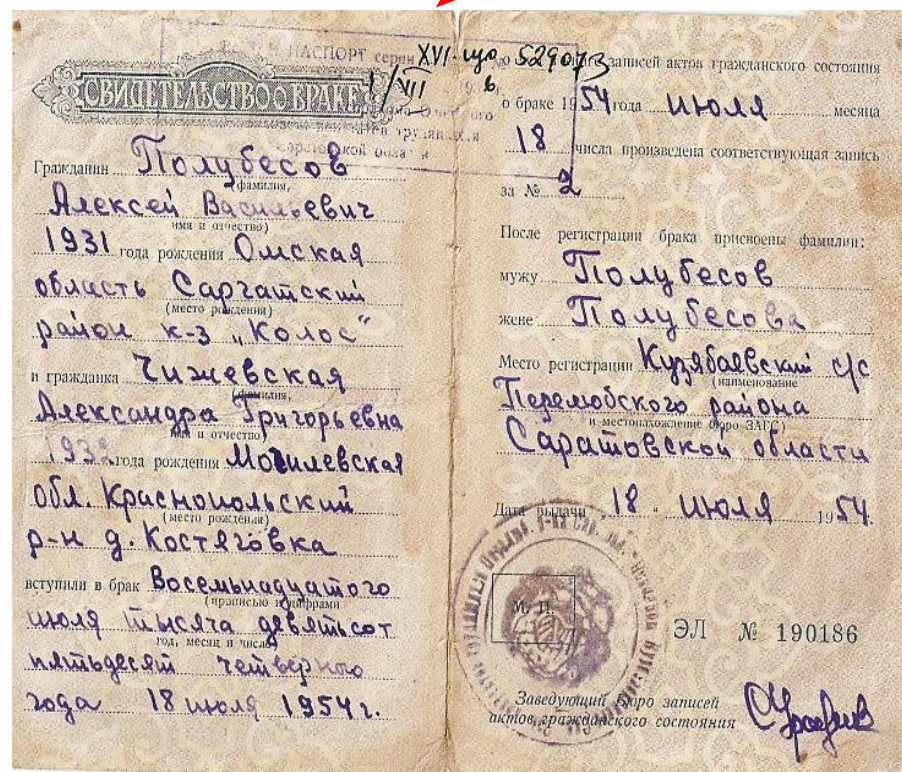 ПАСПОРТ серии XVI-ЦО № 529073
1/VII 6
СВИДЕТЕЛЬСТВО О БРАКЕ
Гражданин Полубесов
фамилия,
Алексей Васильевич
имя и отчество)
1931 года рождения Омская
область Саргатский
(место рождения)
район к-з „Колос“
и гражданка Чижевская
(фамилия,
Александра Григорьевна
имя и отчество)
1932 года рождения Могилевская
обл. Краснопольский
(место рождения)
р-н д. Костяговка
вступили в брак Восемьнадцатого
(прописью и цифрами
июля тысяча девятьсот
год, месяц и число)
пятьдесят четверного
года 18 июля 1954 г.
записей актов гражданского состояния
о браке 1954 года июля месяца
18 числа произведена соответствующая запись
за № 2
После регистрации брака присвоены фамилии:
мужу Полубесов
жене Полубесова
Место регистрации Кузябаевский с/с
(наименование
Перелюбского района
и местонахождение бюро ЗАГС)
Саратовской области
Дата выдачи 18 - июля 1954.
М. П.
ЭЛ № 190186
Заведующий Бюро записей
актов гражданского состояния